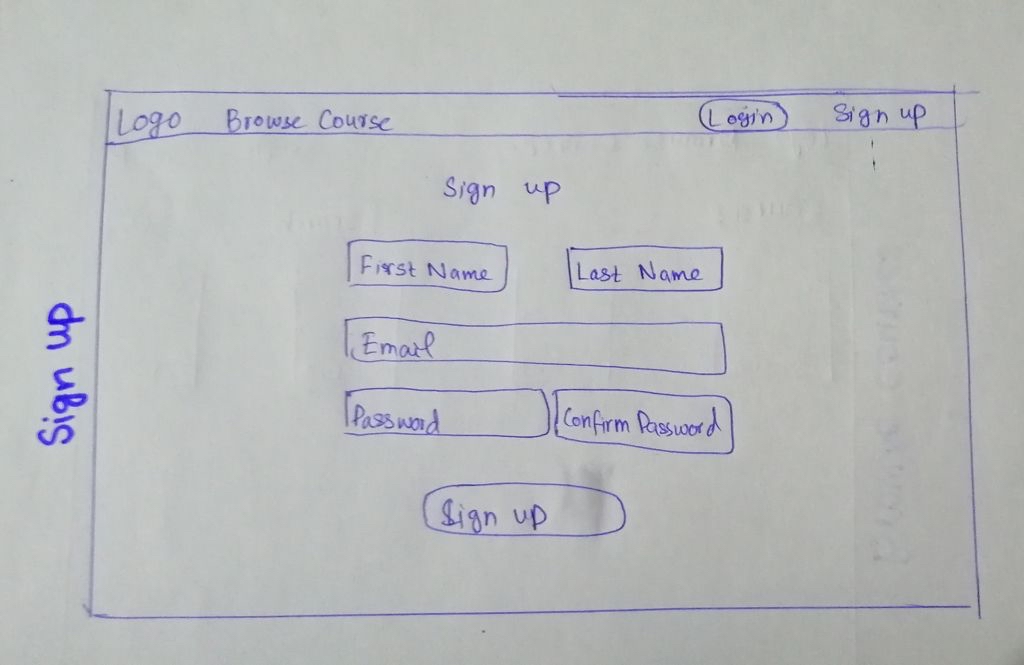 Logo Browse Course Login Sign up
Sign up
First Name Last Name
Email
Password Confirm Password
Sign up
Sign up